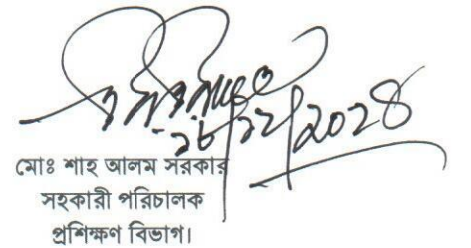 ১৮/১২/২০২৪
মোঃ শাহ আলম সরকার
সহকারী পরিচালক
প্রশিক্ষণ বিভাগ।